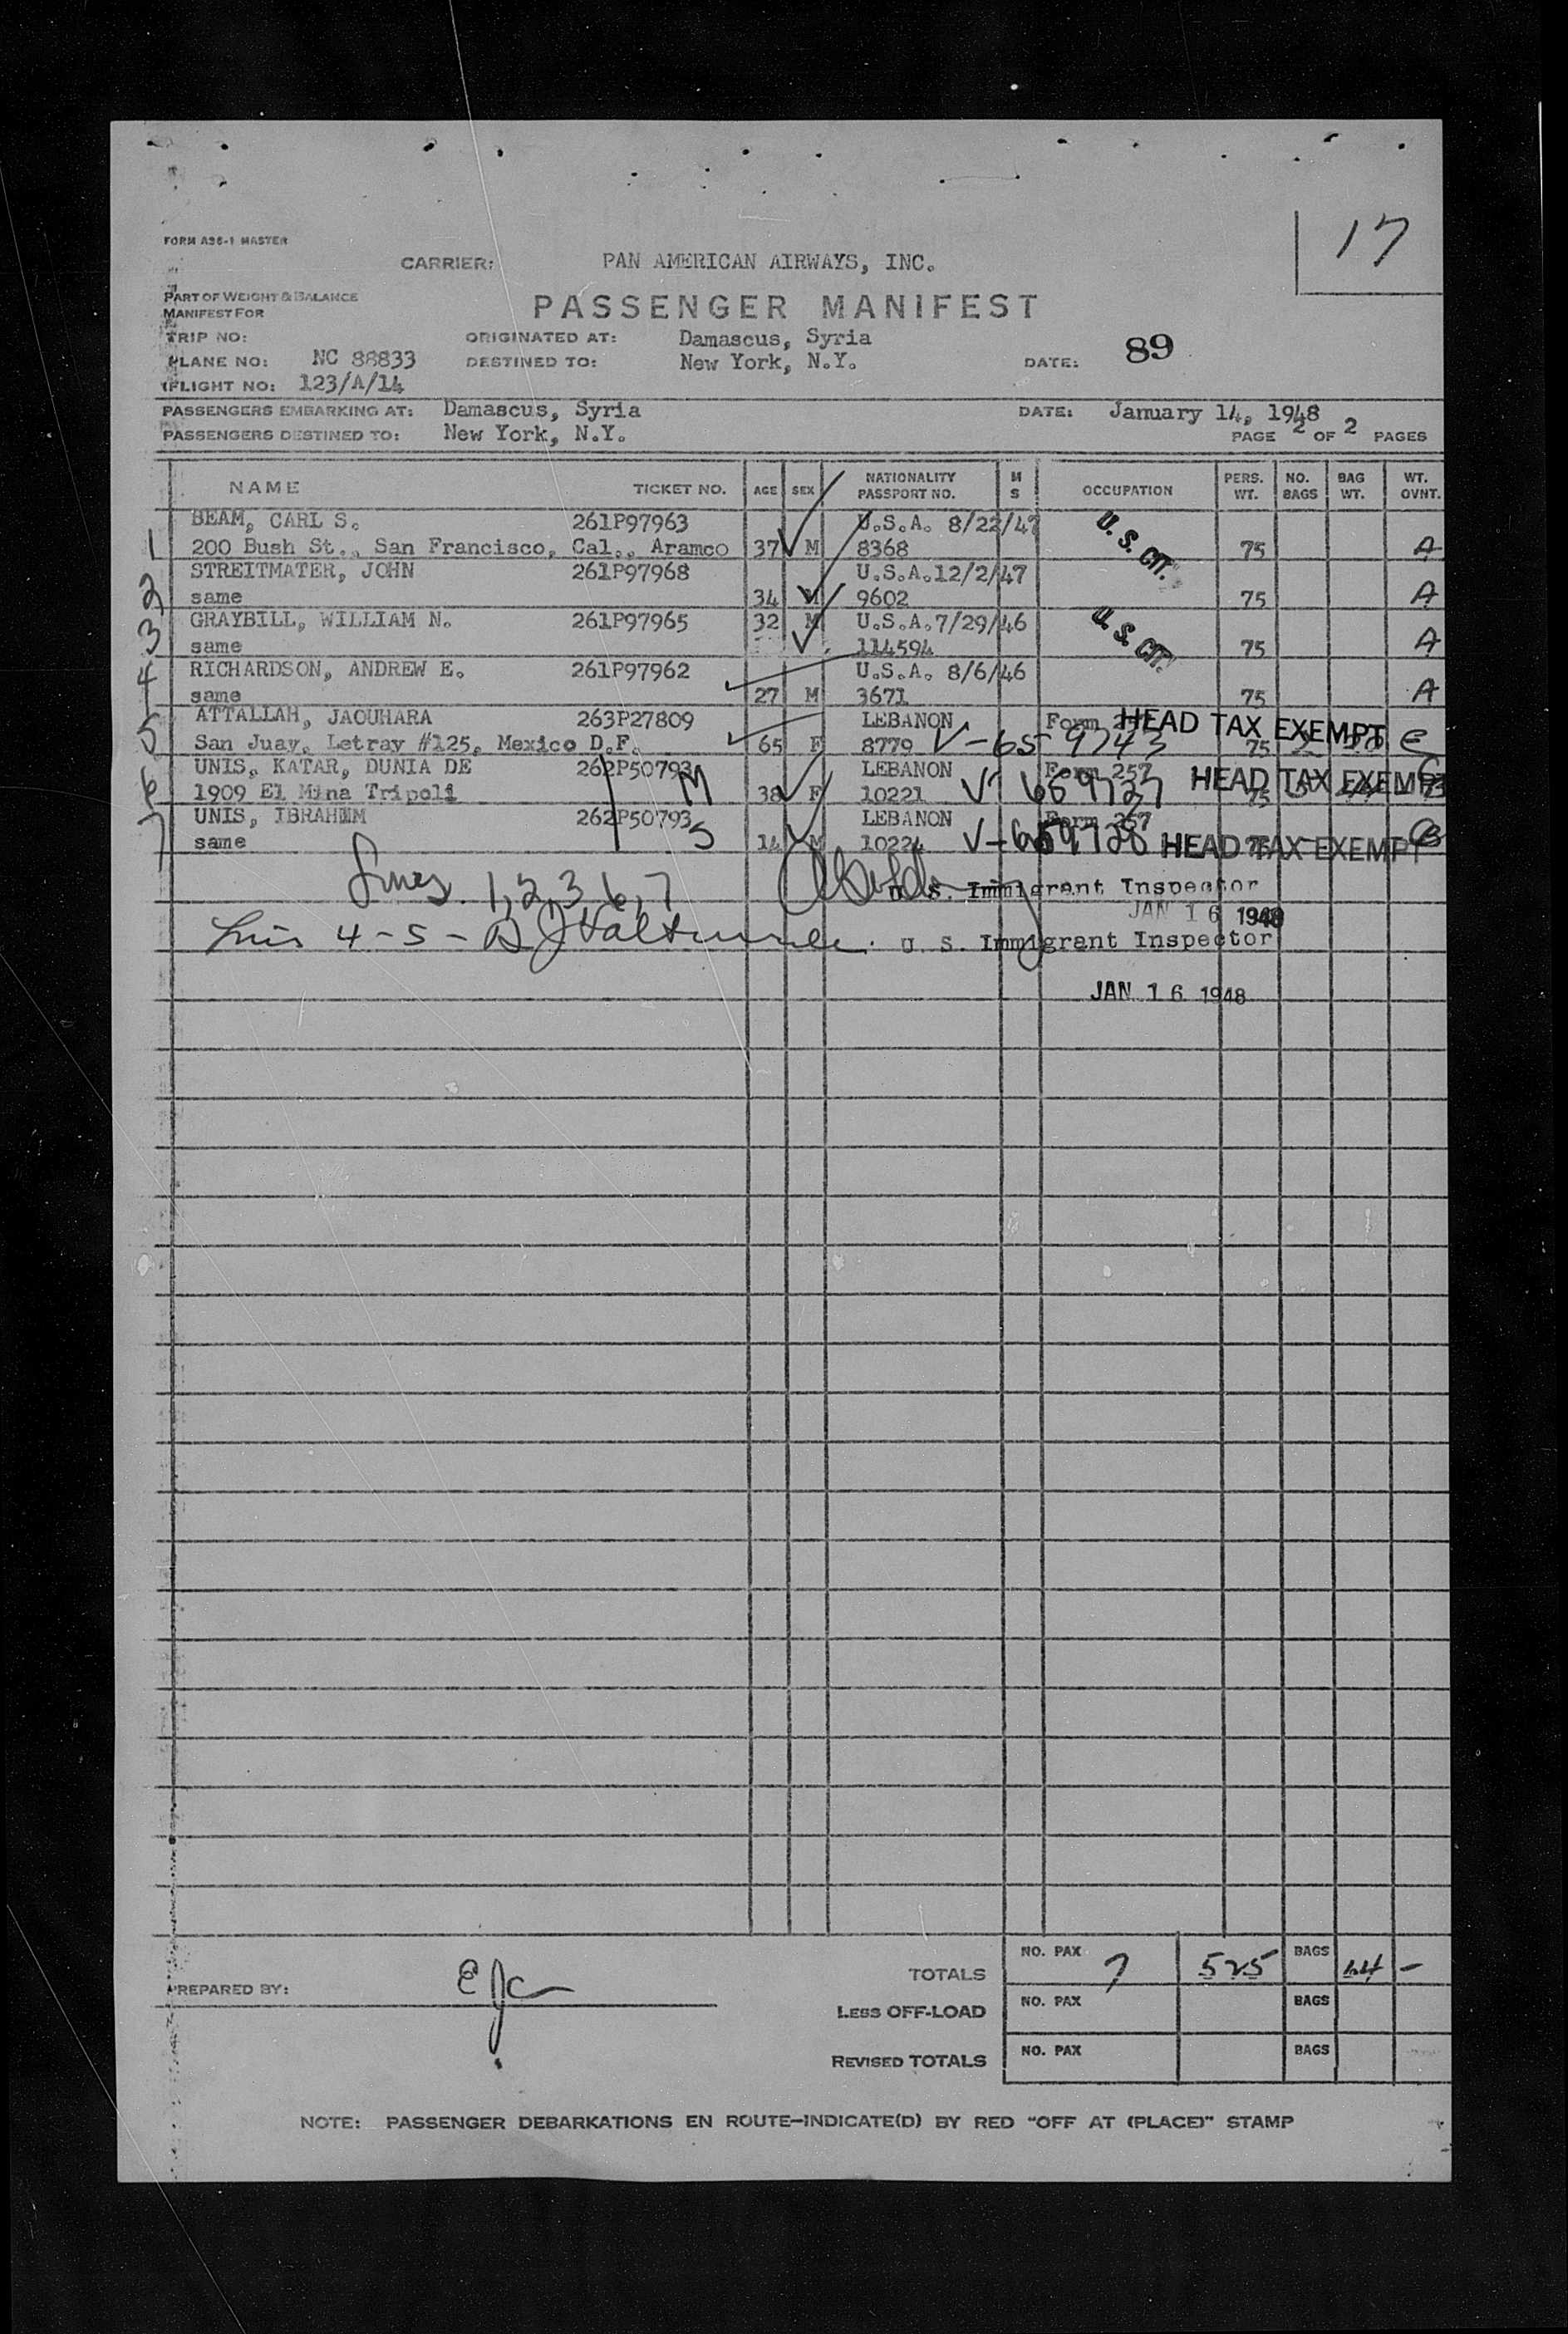 17
FORM A36-1 MASTER
CARRIER: PAN AMERICAN AIRWAYS, INC.
PART OF WEIGHT & BALANCE
MANIFEST FOR
PASSENGER MANIFEST
TRIP NO: ORIGINATED AT: Damascus, Syria
PLANE NO: NC 88833 DESTINED TO: New York, N.Y. DATE: 89
FLIGHT NO: 123/A/14
PASSENGERS EMBARKING AT: Damascus, Syria DATE: January 14, 1948
PASSENGERS DESTINED TO: New York, N.Y. PAGE 2 OF 2 PAGES
NAME TICKET NO. AGE SEX NATIONALITY PASSPORT NO. M S OCCUPATION PERS. WT. NO. BAGS BAG WT. WT. OVNT.
BEAM, CARL S. 261P97963 U.S.A. 8/22/47 U. S. CIT.
1 200 Bush St., San Francisco, Cal., Aramco 37 M 8368 75 A
STREITMATER, JOHN 261P97968 U.S.A.12/2/47
2 same 34 M 9602 75 A
GRAYBILL, WILLIAM N. 261P97965 32 M U.S.A.7/29/46 U. S. CIT.
3 same 114594 75 A
RICHARDSON, ANDREW E. 261P97962 U.S.A. 8/6/46
4 same 27 M 3671 75 A
ATTALLAH, JAOUHARA 263P27809 LEBANON Form HEAD TAX EXEMPT
5 San Juay, Letray #125, Mexico D.F. 65 F 8779 V-65 9743 75 C
UNIS, KATAR, DUNIA DE 262P50793 LEBANON Form 257 HEAD TAX EXEMPT
6 1909 El Mina Tripoli M 38 F 10221 V 659727 75
UNIS, IBRAHEM 262P50793 LEBANON Form 257
7 same S 14 M 10224 V-659728 HEAD TAX EXEMPT
Lines. 1, 2, 3, 6, 7 U. S. Immigrant Inspector
JAN 16 1948
4-5- U. S. Immigrant Inspector
JAN 16 1948
PREPARED BY: TOTALS NO. PAX 7 525 BAGS 44 -
LESS OFF-LOAD NO. PAX BAGS
REVISED TOTALS NO. PAX BAGS
NOTE: PASSENGER DEBARKATIONS EN ROUTE-INDICATE(D) BY RED "OFF AT (PLACE)" STAMP